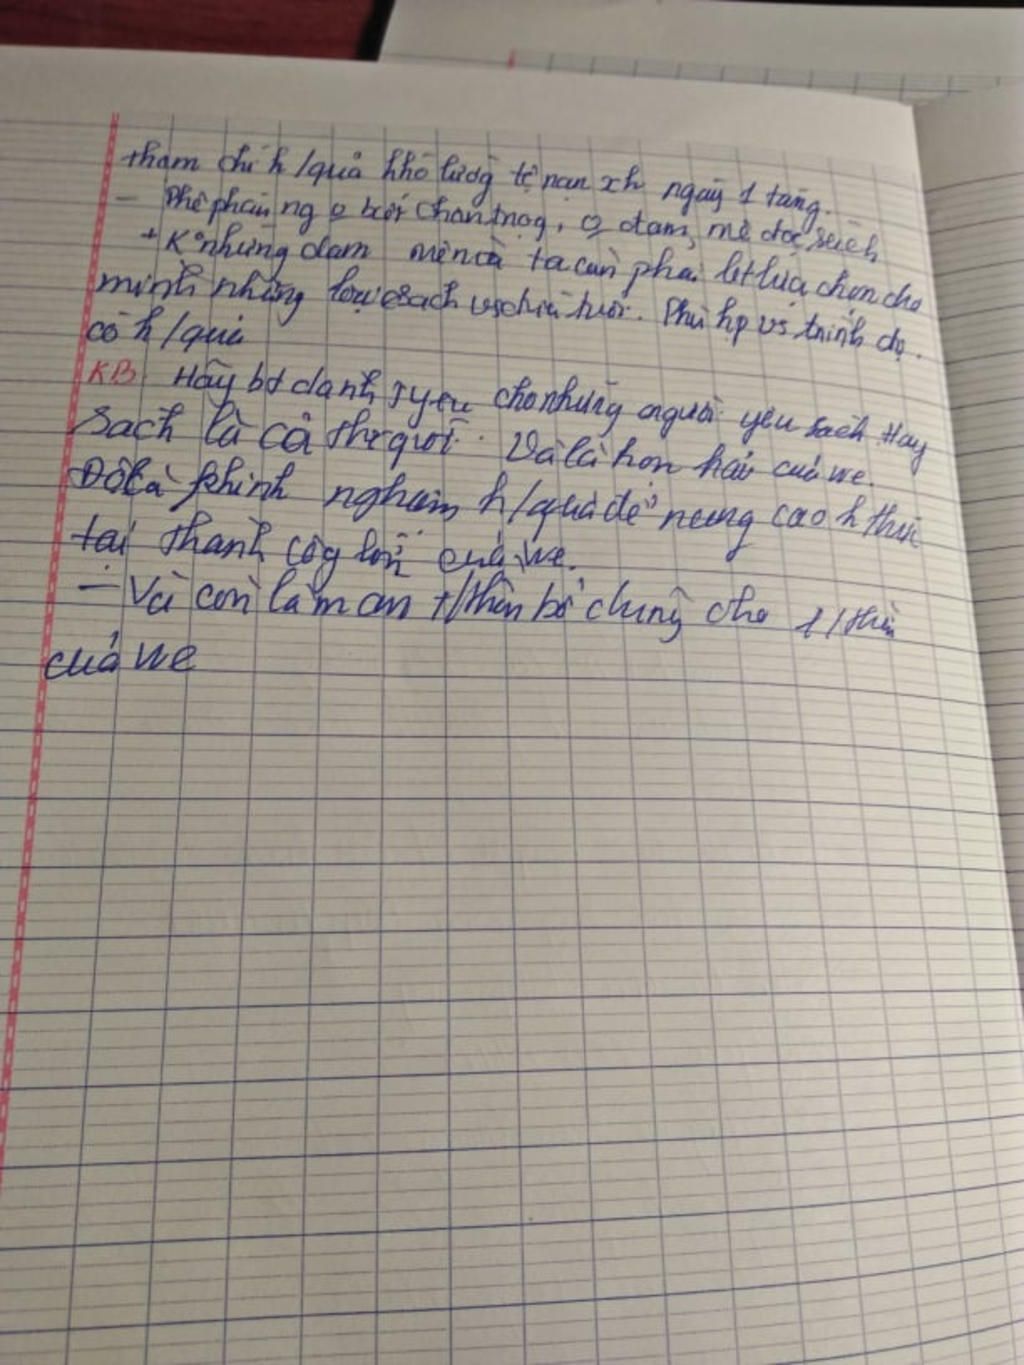 thậm chí h/quả khó lường tệ nạn xh ngày 1 tăng.
- Phê phán ng o biết chân trog, o đam, mê đọc sách
+ K° những đam mê mà ta cần phải bt lựa chọn cho
mình những loại sách vs chiều tuổi. Phù hp vs trình độ.
có h/quả
KB Hãy bd danh yêu cho những người yêu sách Hay
Sach là cả thế giới. Và là hơn hai của we.
Đó là khinh nghiệm h/quả để nâng cao h thức
tại thành côg lớn của we.
- Và còn là m ăn t/thần bổ dưng cho t/thần
của we